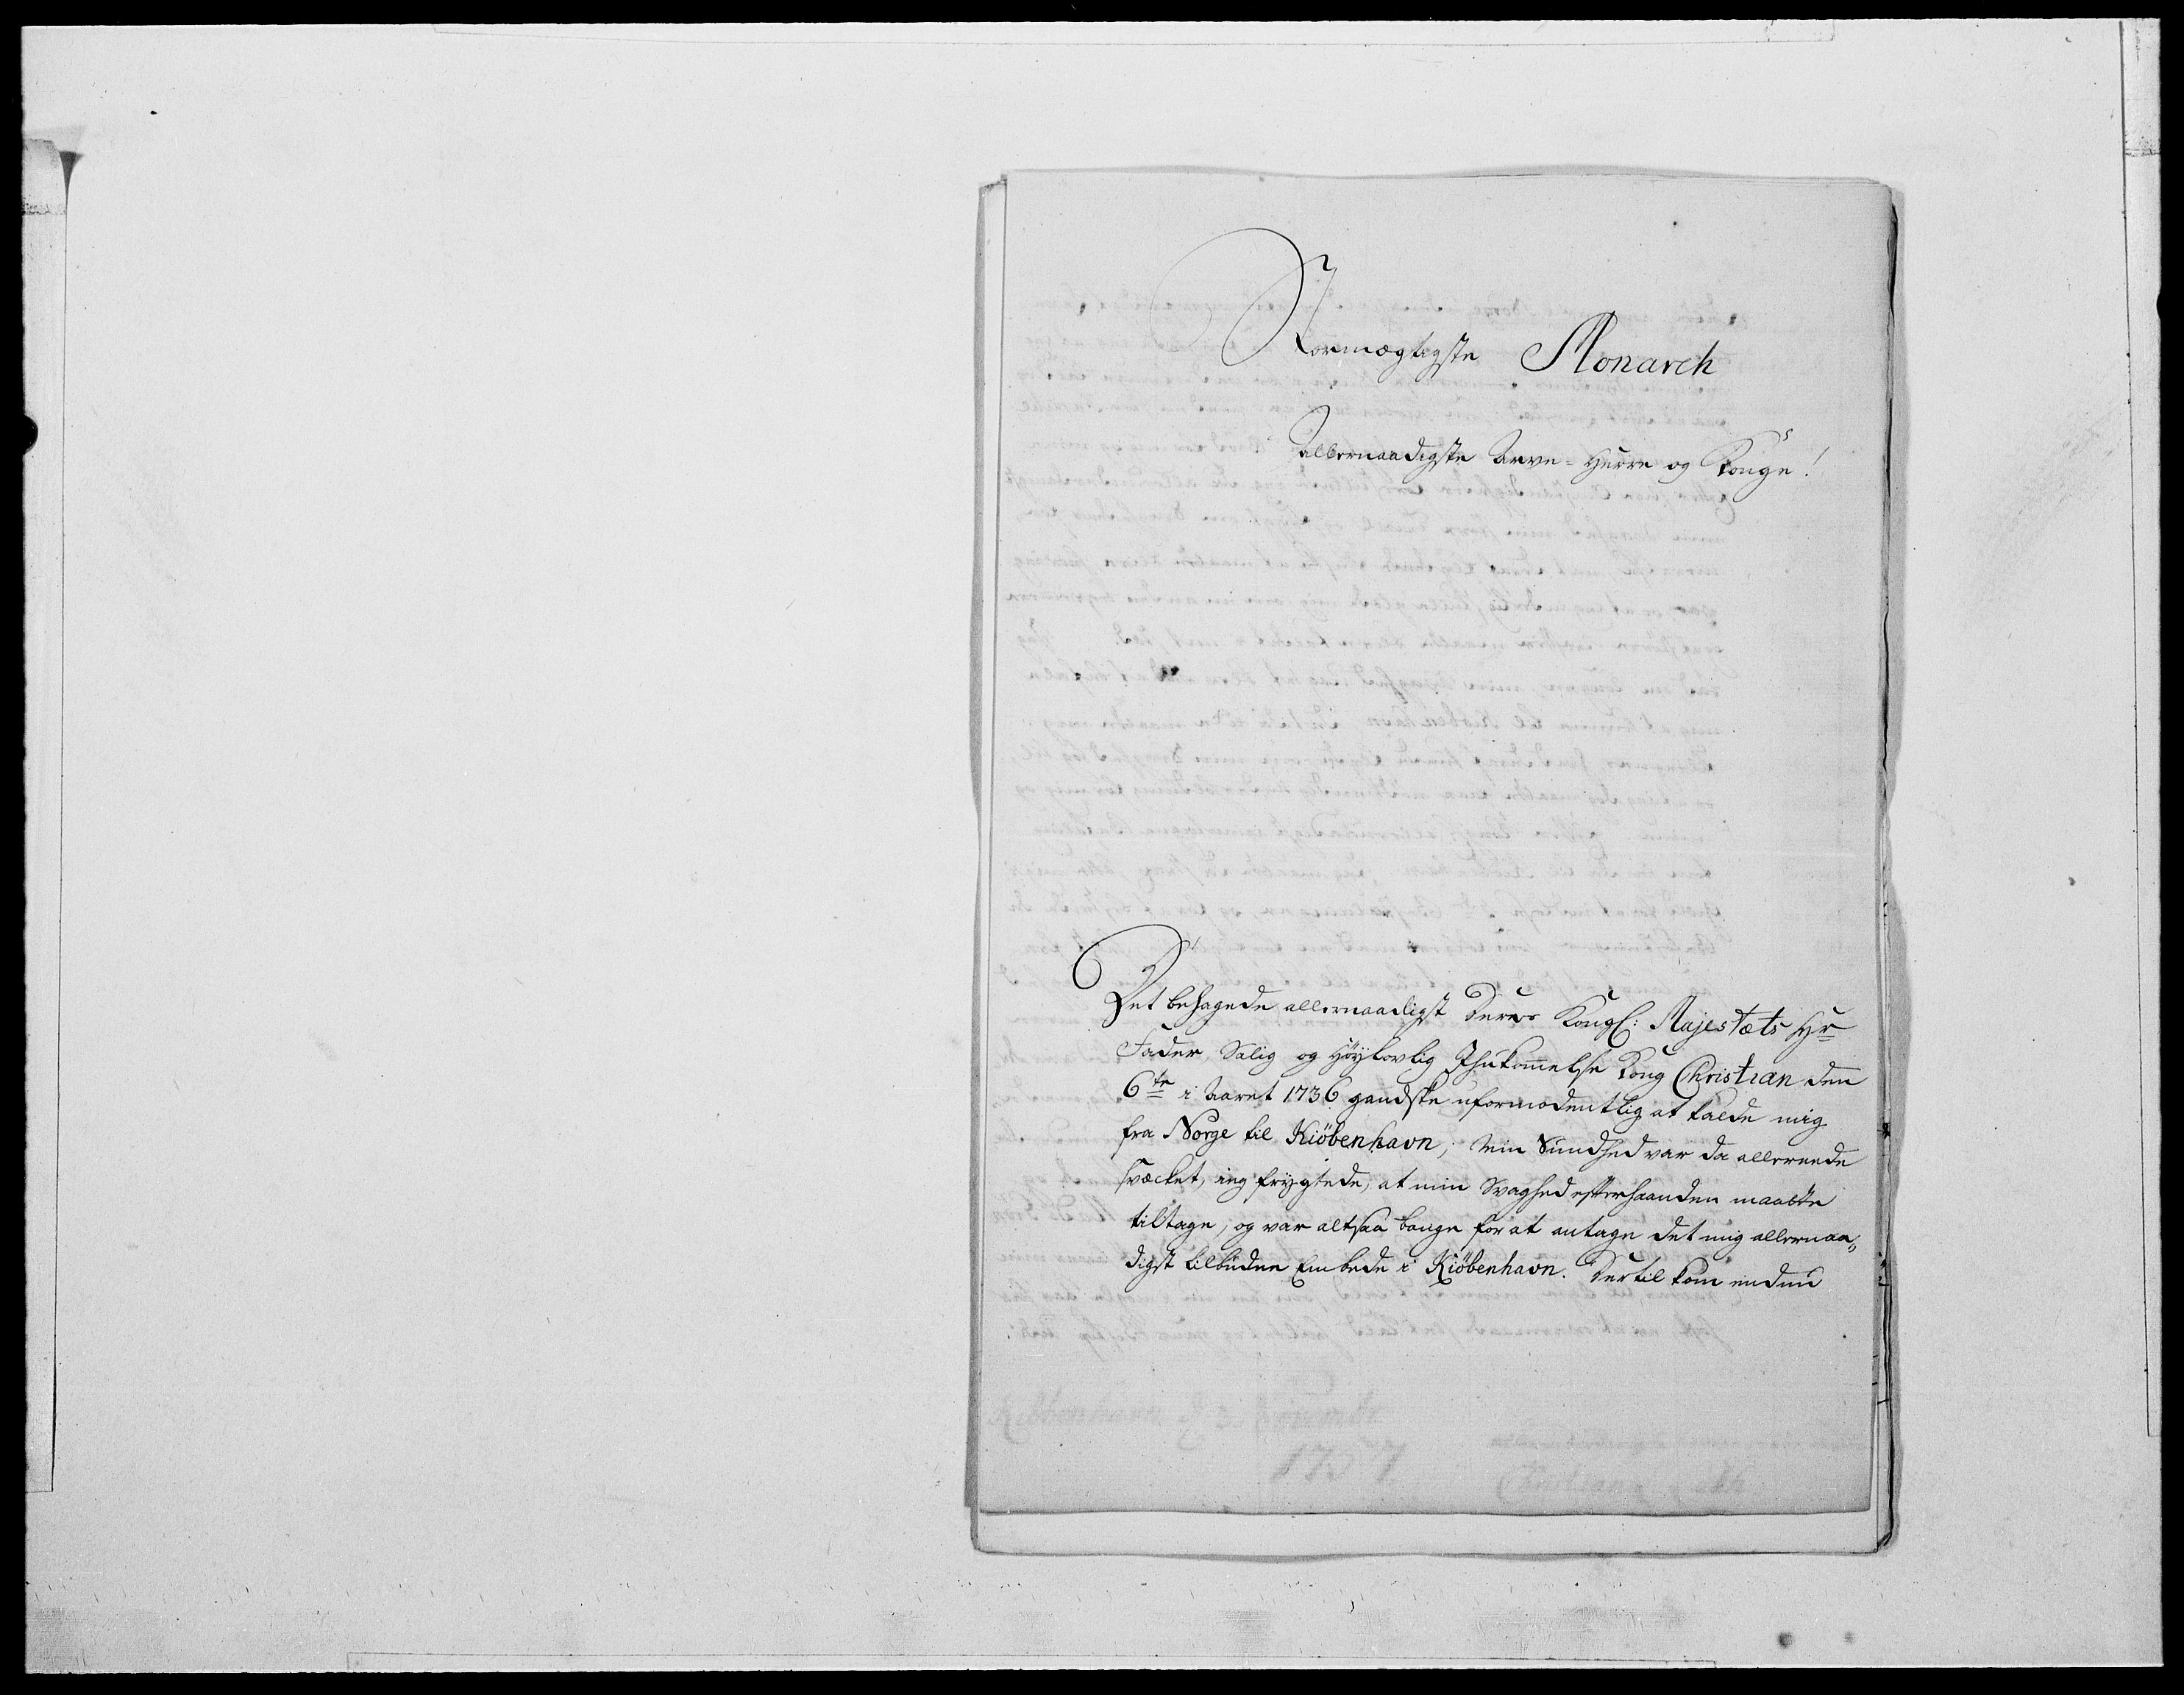 Stormægtigste Monarch
Allernaadigste Arve-Herre og Konge!
Det behagede allernaadigst Deres Kongl: Majestæts Hr
Fader Salig og Höylovlig Ihukommelse Kong Christian den
6te i Aaret 1736 gandske uformodentlig at kalde mig
fra Norge til Kiöbenhavn; Min Sundhed var da allereede
svæcket, ieg frygtede, at min Svaghed efterhaanden maatte
tiltage, og var altsaa bange for at antage det mig allernaa„
digst tilbudne Embede i Kiöbenhavn. Dertil kom endnu